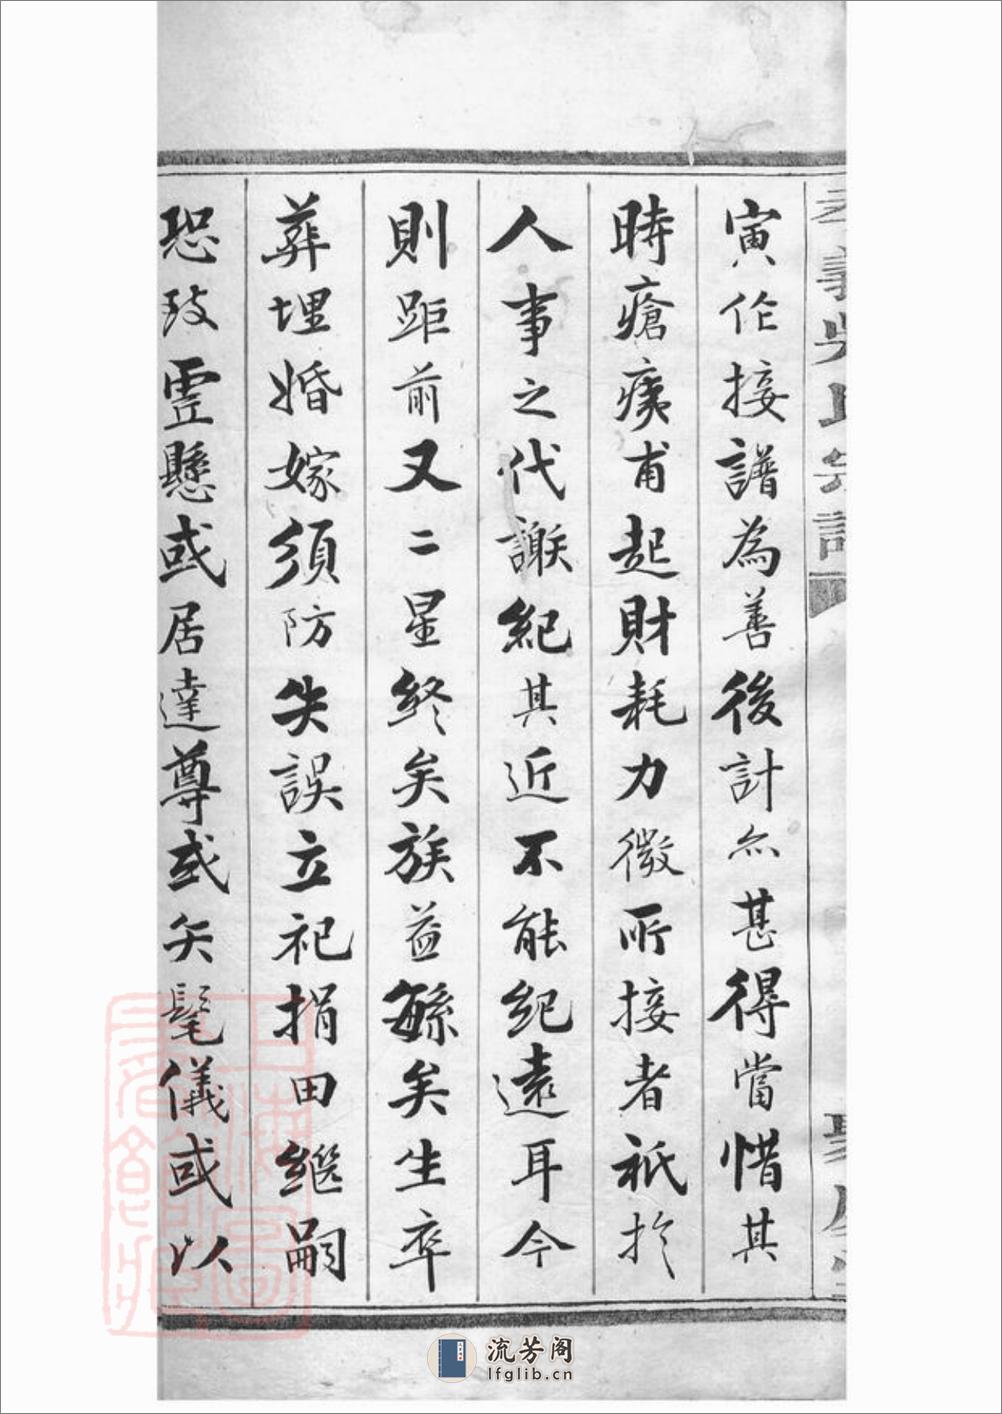 寅作接譜為善後計亦甚得當惜其
時瘡痍甫起財耗力微所接者祇於
人事之代謝紀其近不能紀遠耳今
則距前又二星終矣族益繇矣生卒
葬埋婚嫁須防失誤立祀捐田繼嗣
恐致虛懸或居達尊或矢髦儀或以
義吳氏宗譜
流芳阁
lfglib.cn